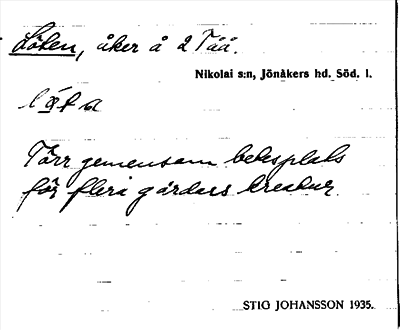 Löten, åker å 2 Tåå.
Nikolai s:n, Jönåkers hd. Söd. l.
Förr gemensam betesplats
för flera gårdars kreatur.
STIG JOHANSSON 1935.